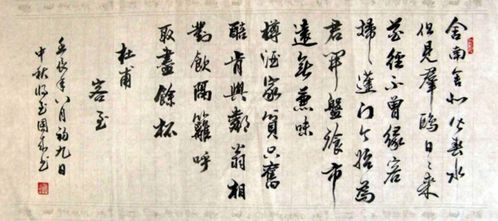 舍南舍北皆春水
但見群鷗日々來
花徑不曾緣客
掃蓬門今始為
君開盤飧市
遠無兼味
樽酒家貧只舊
醅肯與鄰翁相
對飲隔籬呼
取盡餘杯
杜甫
客至
壬辰年八月初九日
中秋將至國書